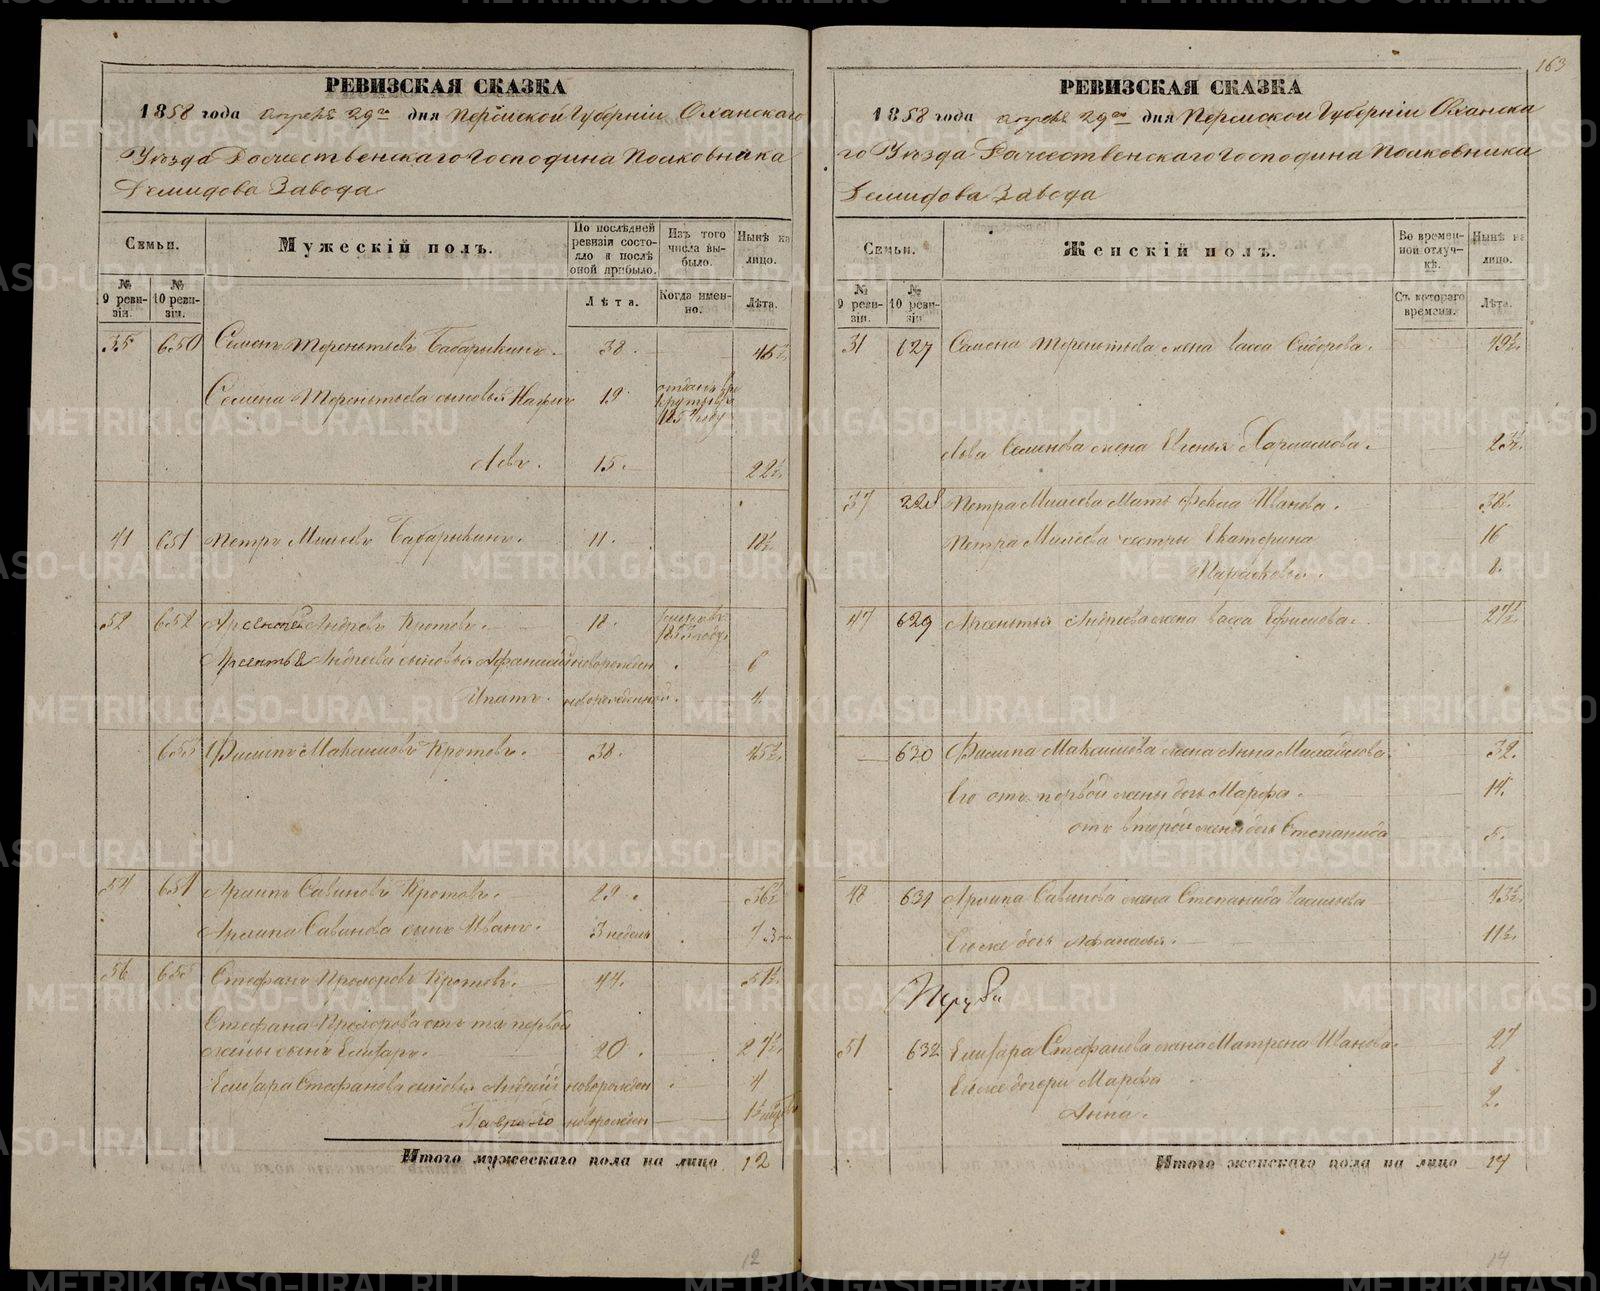 163
РЕВИЗСКАЯ СКАЗКА
1858 года апреля 29го дня Пермской Губерніи Оханскаго
Уѣзда Рождественскаго Господина Полковника
Демидова Завода
Семьи.
Мужескій полъ.
По послѣдней ревизіи состояло и послѣ оной прибыло.
Изъ того числа выбыло.
Нынѣ на лицо.
№ 9 ревизіи.
№ 10 ревизіи.
Лѣта.
Когда именно.
Лѣта.
35 650 Семенъ Терентьевъ Бабарыкинъ. 38. 45½.
Семена Терентьева сыновья 19. отданъ въ рекруты въ 1854 году
Левъ. 15. 22½.
41 651 Петръ Бабарыкинъ. 11. 18½.
52 652 Арсентей Андреевъ Кротовъ. 18.
Арсентья Андреева сыновья Афанасій новорожден. 6
Ипатъ. новорожденной. 4.
653 Филипъ Максимовъ Кротовъ. 38. 45½.
54 654 Архипъ Савиновъ Кротовъ. 29. 36½
Архипа Савинова сынъ Иванъ. 3 недель 7
56 655 Стефанъ Прохоровъ Кротовъ. 44. 51½.
Стефана Прохорова отъ первой
жены сынъ Елизаръ. 20. 27½.
Елизара Стефанова сыновья Андрей новорожден. 4
Гаврило новорожден
Итого мужескаго пола на лицо 12
12
РЕВИЗСКАЯ СКАЗКА
1858 года апреля 29го дня Пермской Губерніи Оханска
го Уѣзда Рождественскаго Господина Полковника
Демидова Завода
Семьи.
Женскій полъ.
Во временной отлучкѣ.
Нынѣ на лицо.
№ 9 ревизіи.
№ 10 ревизіи.
Съ котораго времени.
Лѣта.
31 627 Семена Терентьева жена Васса Сидорова. 49½.
Льва Семенова жена Харлампова. 23½.
37 228 Петра Мать Фекла Иванова. 38½.
Петра сестры Екатерина 16
Парасковья. 8.
47 629 Арсентья Андреева жена Васса Ефимова. 27½.
630 Филипа Максимова жена Анна Михайлова. 32.
Его отъ первой жены дочь Марфа. 14.
отъ второй жены дочь Степанида 5.
48 631 Архипа Савинова жена Степанида Васильева 43½.
Ево же дочь Афанасья. 11½.
51 632 Елизара Стефанова жена Матрена Иванова. 27
Ево же дочери Марфа 8
Анна. 2.
Итого женскаго пола на лицо 14
14
METRIKI.GASO-URAL.RU